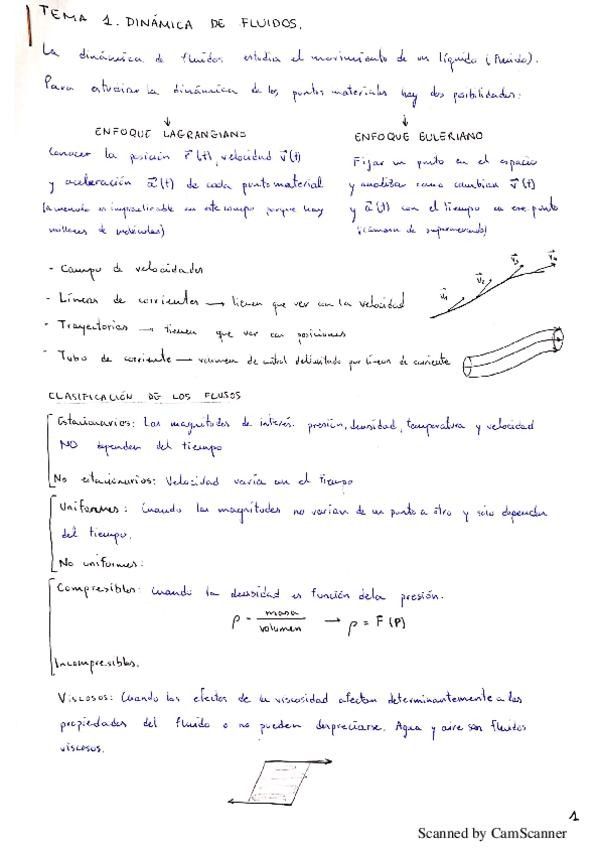 TEMA 1. DINÁMICA DE FLUIDOS.
La dinámica de fluidos estudia el movimiento de un líquido (fluido).
Para estudiar la dinámica de los puntos materiales hay dos posibilidades:
ENFOQUE LAGRANGIANO
Conocer la posición r⃗(t), velocidad v⃗(t)
y aceleración a⃗(t) de cada punto material
(a menudo es impracticable en este campo porque hay
millones de moléculas)
ENFOQUE EULERIANO
Fijar un punto en el espacio
y analizar como cambian v⃗(t)
y a⃗(t) con el tiempo en ese punto
(cámara de supermercado)
- Campo de velocidades
- Líneas de corrientes → tienen que ver con la velocidad
- Trayectorias → tienen que ver con posiciones
- Tubo de corriente → volumen de control delimitado por líneas de corriente
v⃗1 v⃗2 v⃗3 v⃗4
CLASIFICACIÓN DE LOS FLUJOS
Estacionarios: Las magnitudes de interés: presión, densidad, temperatura y velocidad
NO dependen del tiempo
No estacionarios: Velocidad varía con el tiempo
Uniformes: Cuando las magnitudes no varían de un punto a otro y solo dependen
del tiempo.
No uniformes:
Compresibles: Cuando la densidad es función de la presión.
ρ = masa/volumen → ρ = F(P)
Incompresibles.
Viscosos: Cuando los efectos de la viscosidad afectan determinantemente a las
propiedades del fluido o no pueden despreciarse. Agua y aire son fluidos
viscosos.
1
Scanned by CamScanner